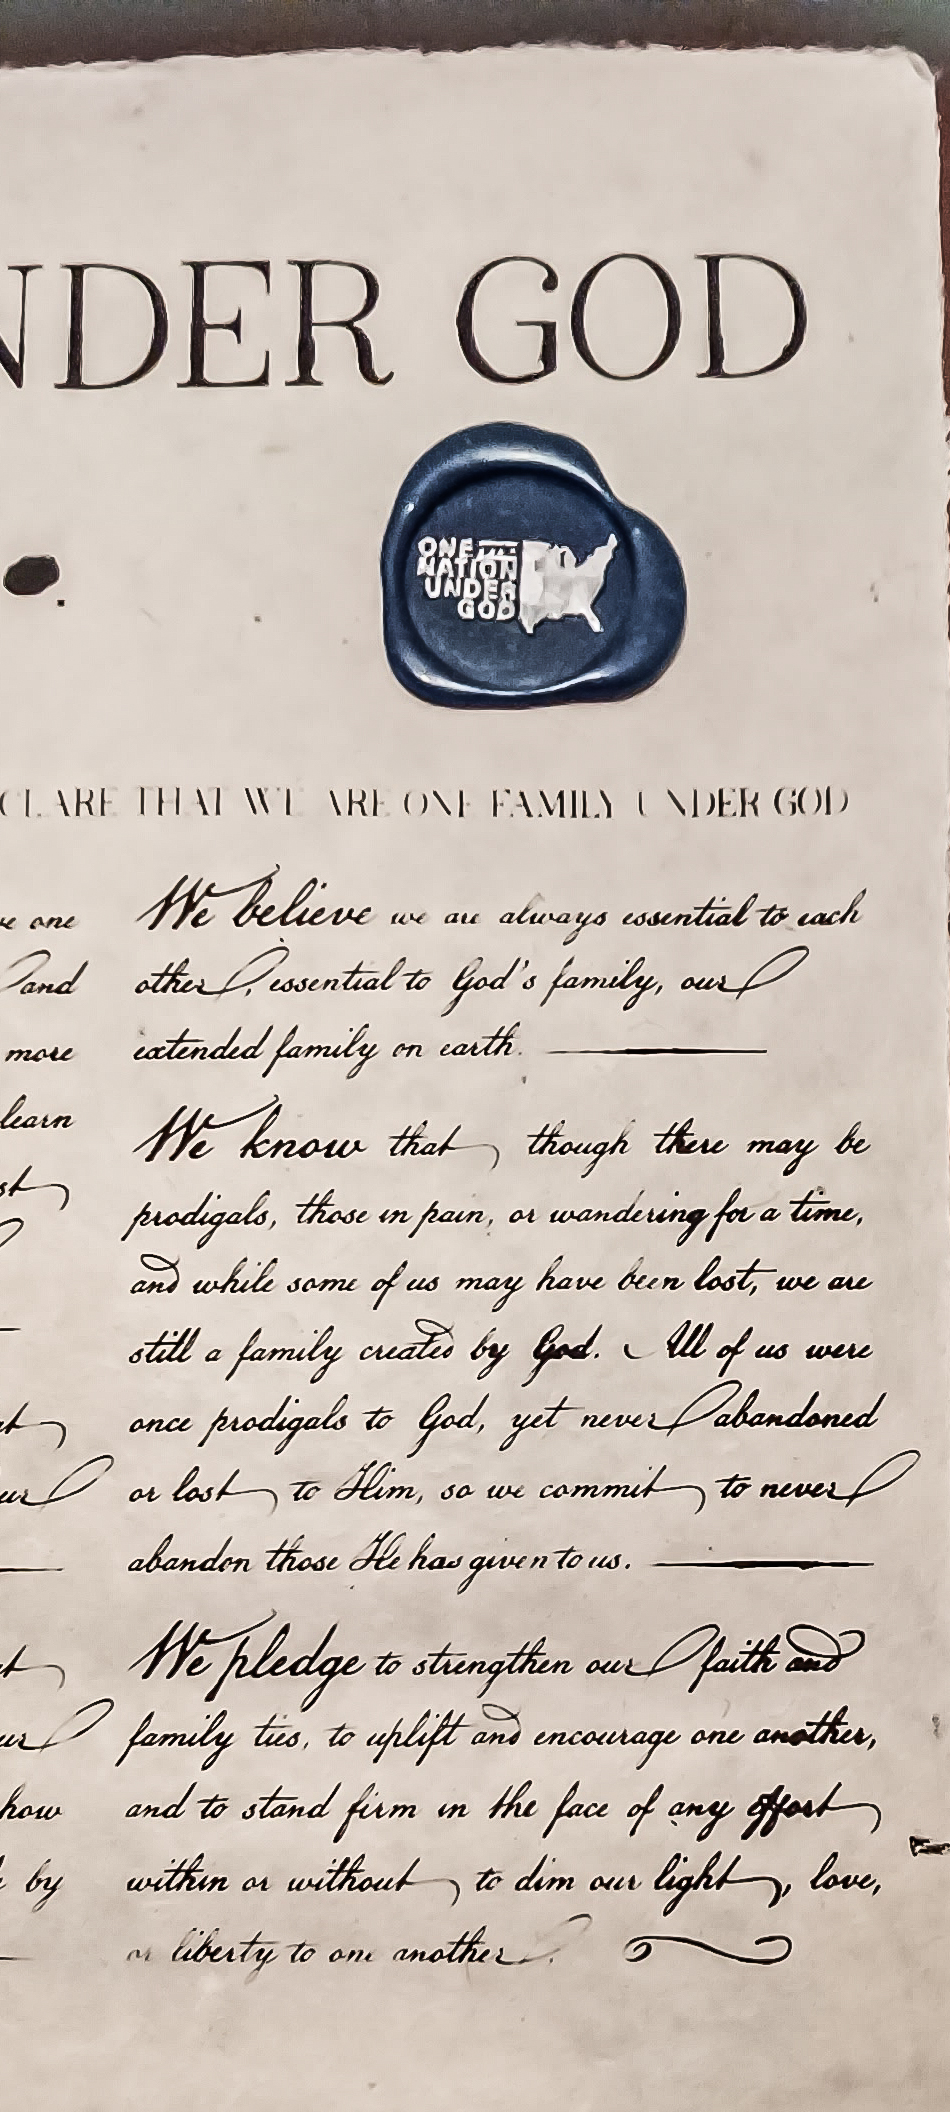 NDER GOD
ONE
NATION
UNDER
GOD
CLARE THAT WE ARE ONE FAMILY UNDER GOD
one
and
more
learn
how
by
We believe we are always essential to each
other, essential to God's family, our
extended family on earth.
We know that though there may be
prodigals, those in pain, or wandering for a time,
and while some of us may have been lost, we are
still a family created by God. All of us were
once prodigals to God, yet never abandoned
or lost to Him, so we commit to never
abandon those He has given to us.
We pledge to strengthen our faith and
family ties, to uplift and encourage one another,
and to stand firm in the face of any effort
within or without to dim our light, love,
or liberty to one another.